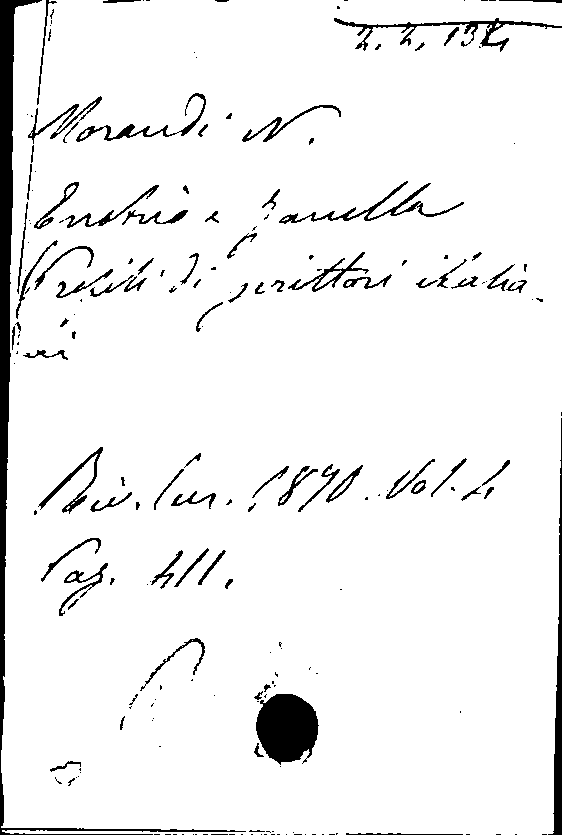 2. 2. 134
Morandi N.
Erotino e Zanella
Profili di scrittori italia-
ni
Riv. Eur. 1870. Vol. 4
Pag. 411.